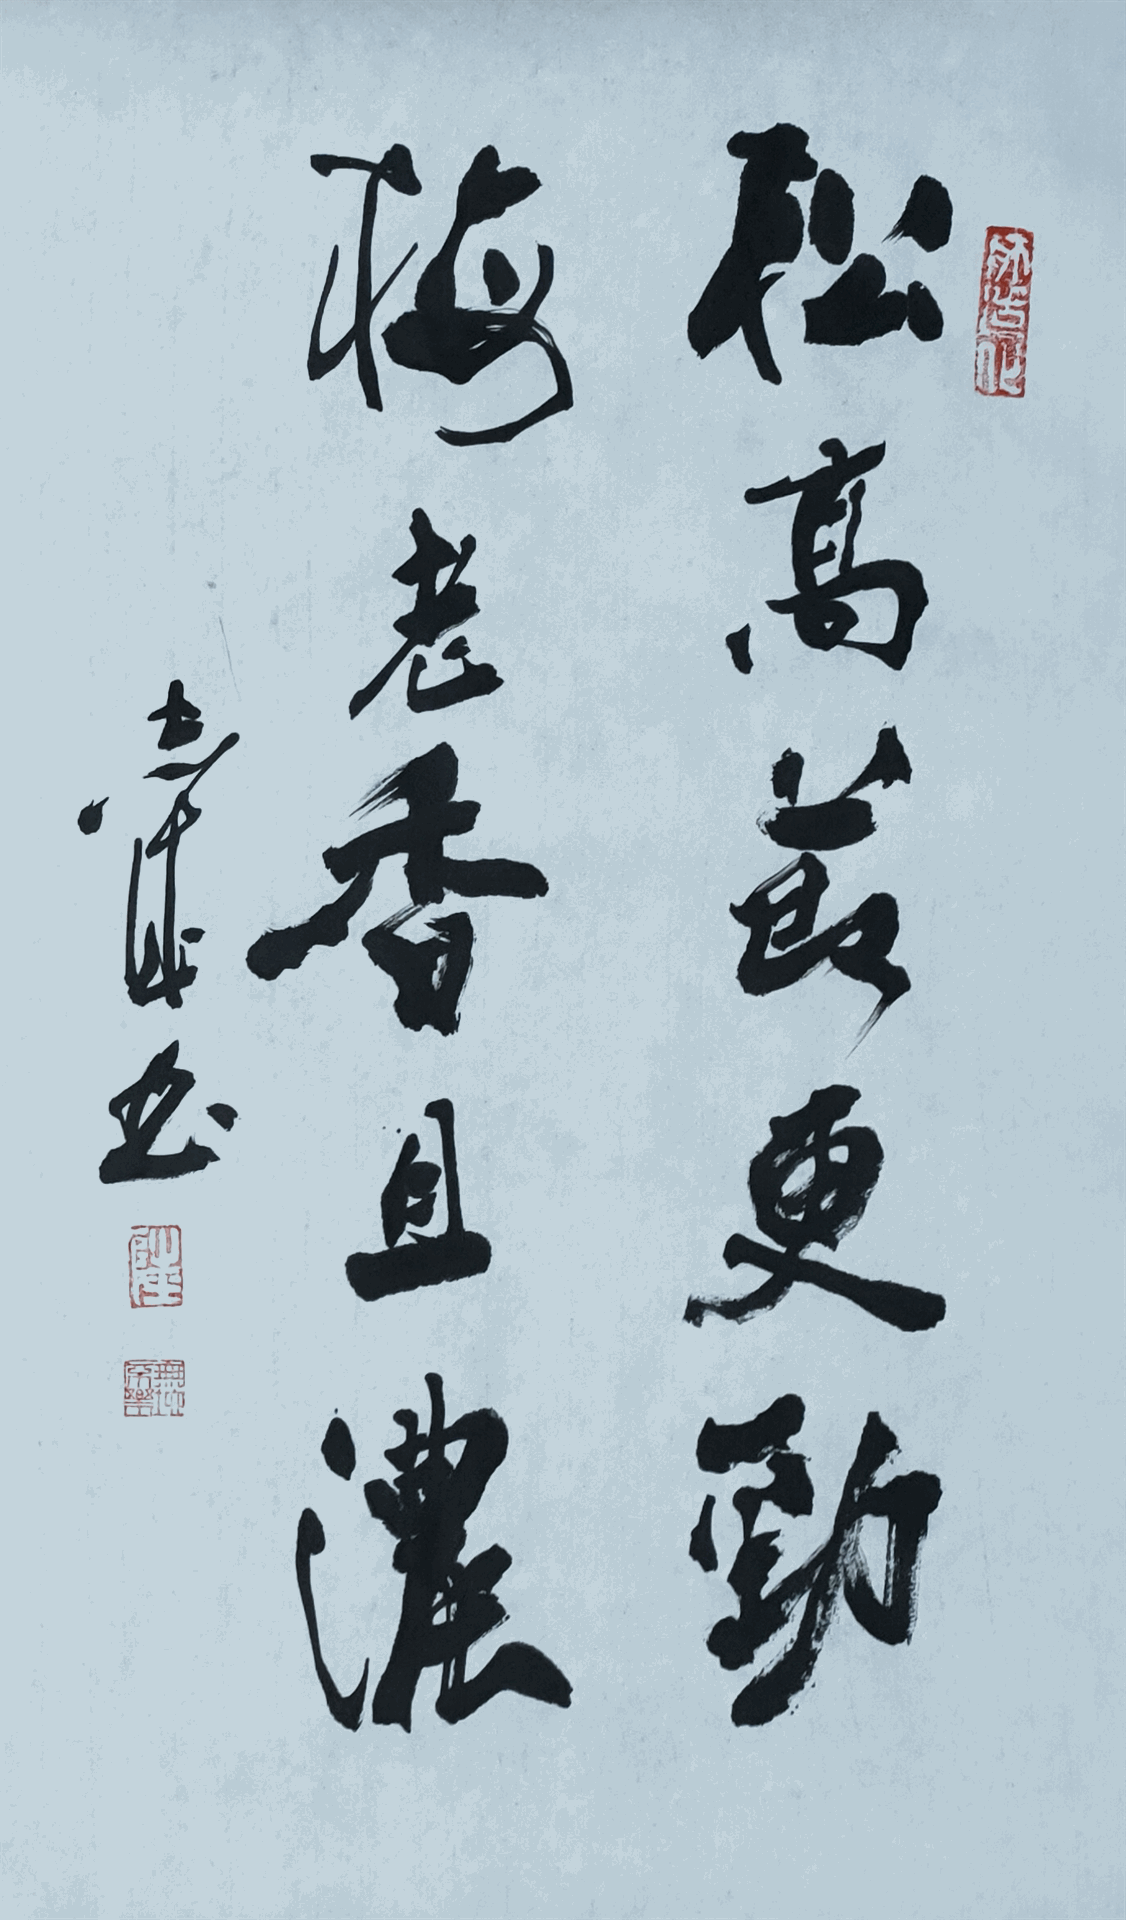 松高节更勁
梅老香且濃
书